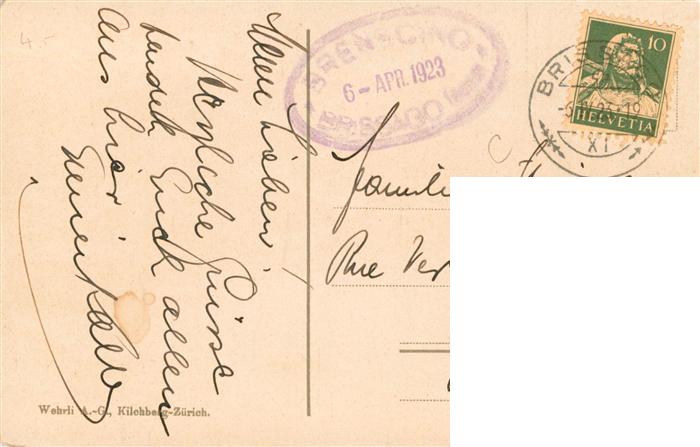 4.-
Meine Lieben!
Herzliche Grüsse
sendet Euch allen
aus hier
BREN-CINO
6-APR.1923
BRISSAGO
10
HELVETIA
BRIS
XI
Familie
Rue Ver
Wehrli A.-G., Kilchberg-Zürich.